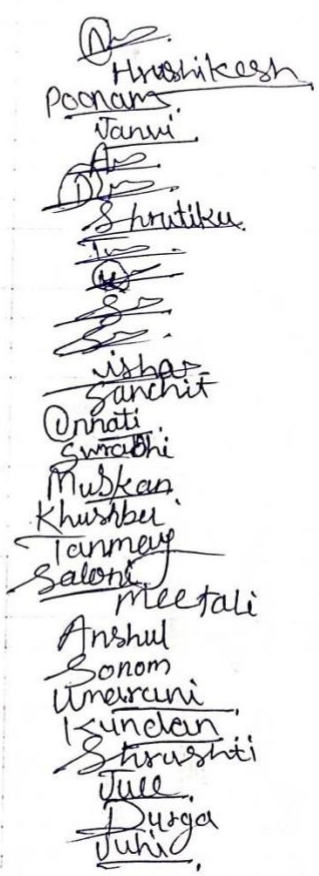 Hrushikesh
Poonam
Janvi
Shrutika
isha
Sanchit
Unnati
Surabhi
Muskan
Khushbu
Tanmay
Saloni
Meetali
Anshul
Sonom
Unarani
Kundan
Shrushti
Juee
Durga
Juhi